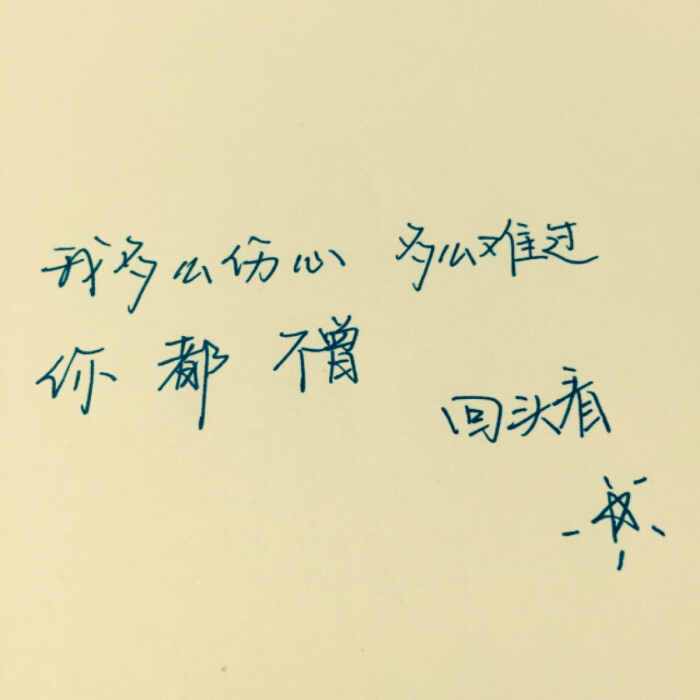 我多么伤心 多么难过
你都不曾
回头看